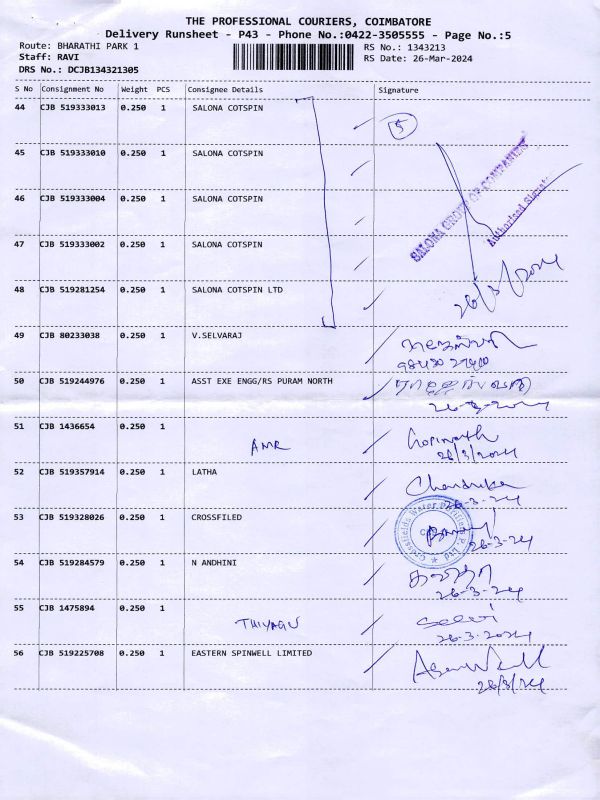 THE PROFESSIONAL COURIERS, COIMBATORE
Delivery Runsheet - P43 - Phone No.:0422-3505555 - Page No.:5
Route: BHARATHI PARK 1 RS No.: 1343213
Staff: RAVI RS Date: 26-Mar-2024
DRS No.: DCJB134321305
S No Consignment No Weight PCS Consignee Details Signature
44 CJB 519333013 0.250 1 SALONA COTSPIN 5
45 CJB 519333010 0.250 1 SALONA COTSPIN
46 CJB 519333004 0.250 1 SALONA COTSPIN
SALONA GROUP OF COMPANIES
Authorised
47 CJB 519333002 0.250 1 SALONA COTSPIN
48 CJB 519281254 0.250 1 SALONA COTSPIN LTD 26/3/2024
49 CJB 80233038 0.250 1 V.SELVARAJ
50 CJB 519244976 0.250 1 ASST EXE ENGG/RS PURAM NORTH
26-3-2024
51 CJB 1436654 0.250 1 AMR Gopinath
26/3/2024
52 CJB 519357914 0.250 1 LATHA Chandrika
26-3-24
53 CJB 519328026 0.250 1 CROSSFILED
26-3-24
54 CJB 519284579 0.250 1 N ANDHINI
26-3-24
55 CJB 1475894 0.250 1 THIYAGU Selvi
26-3-2024
56 CJB 519225708 0.250 1 EASTERN SPINWELL LIMITED
26/3/24